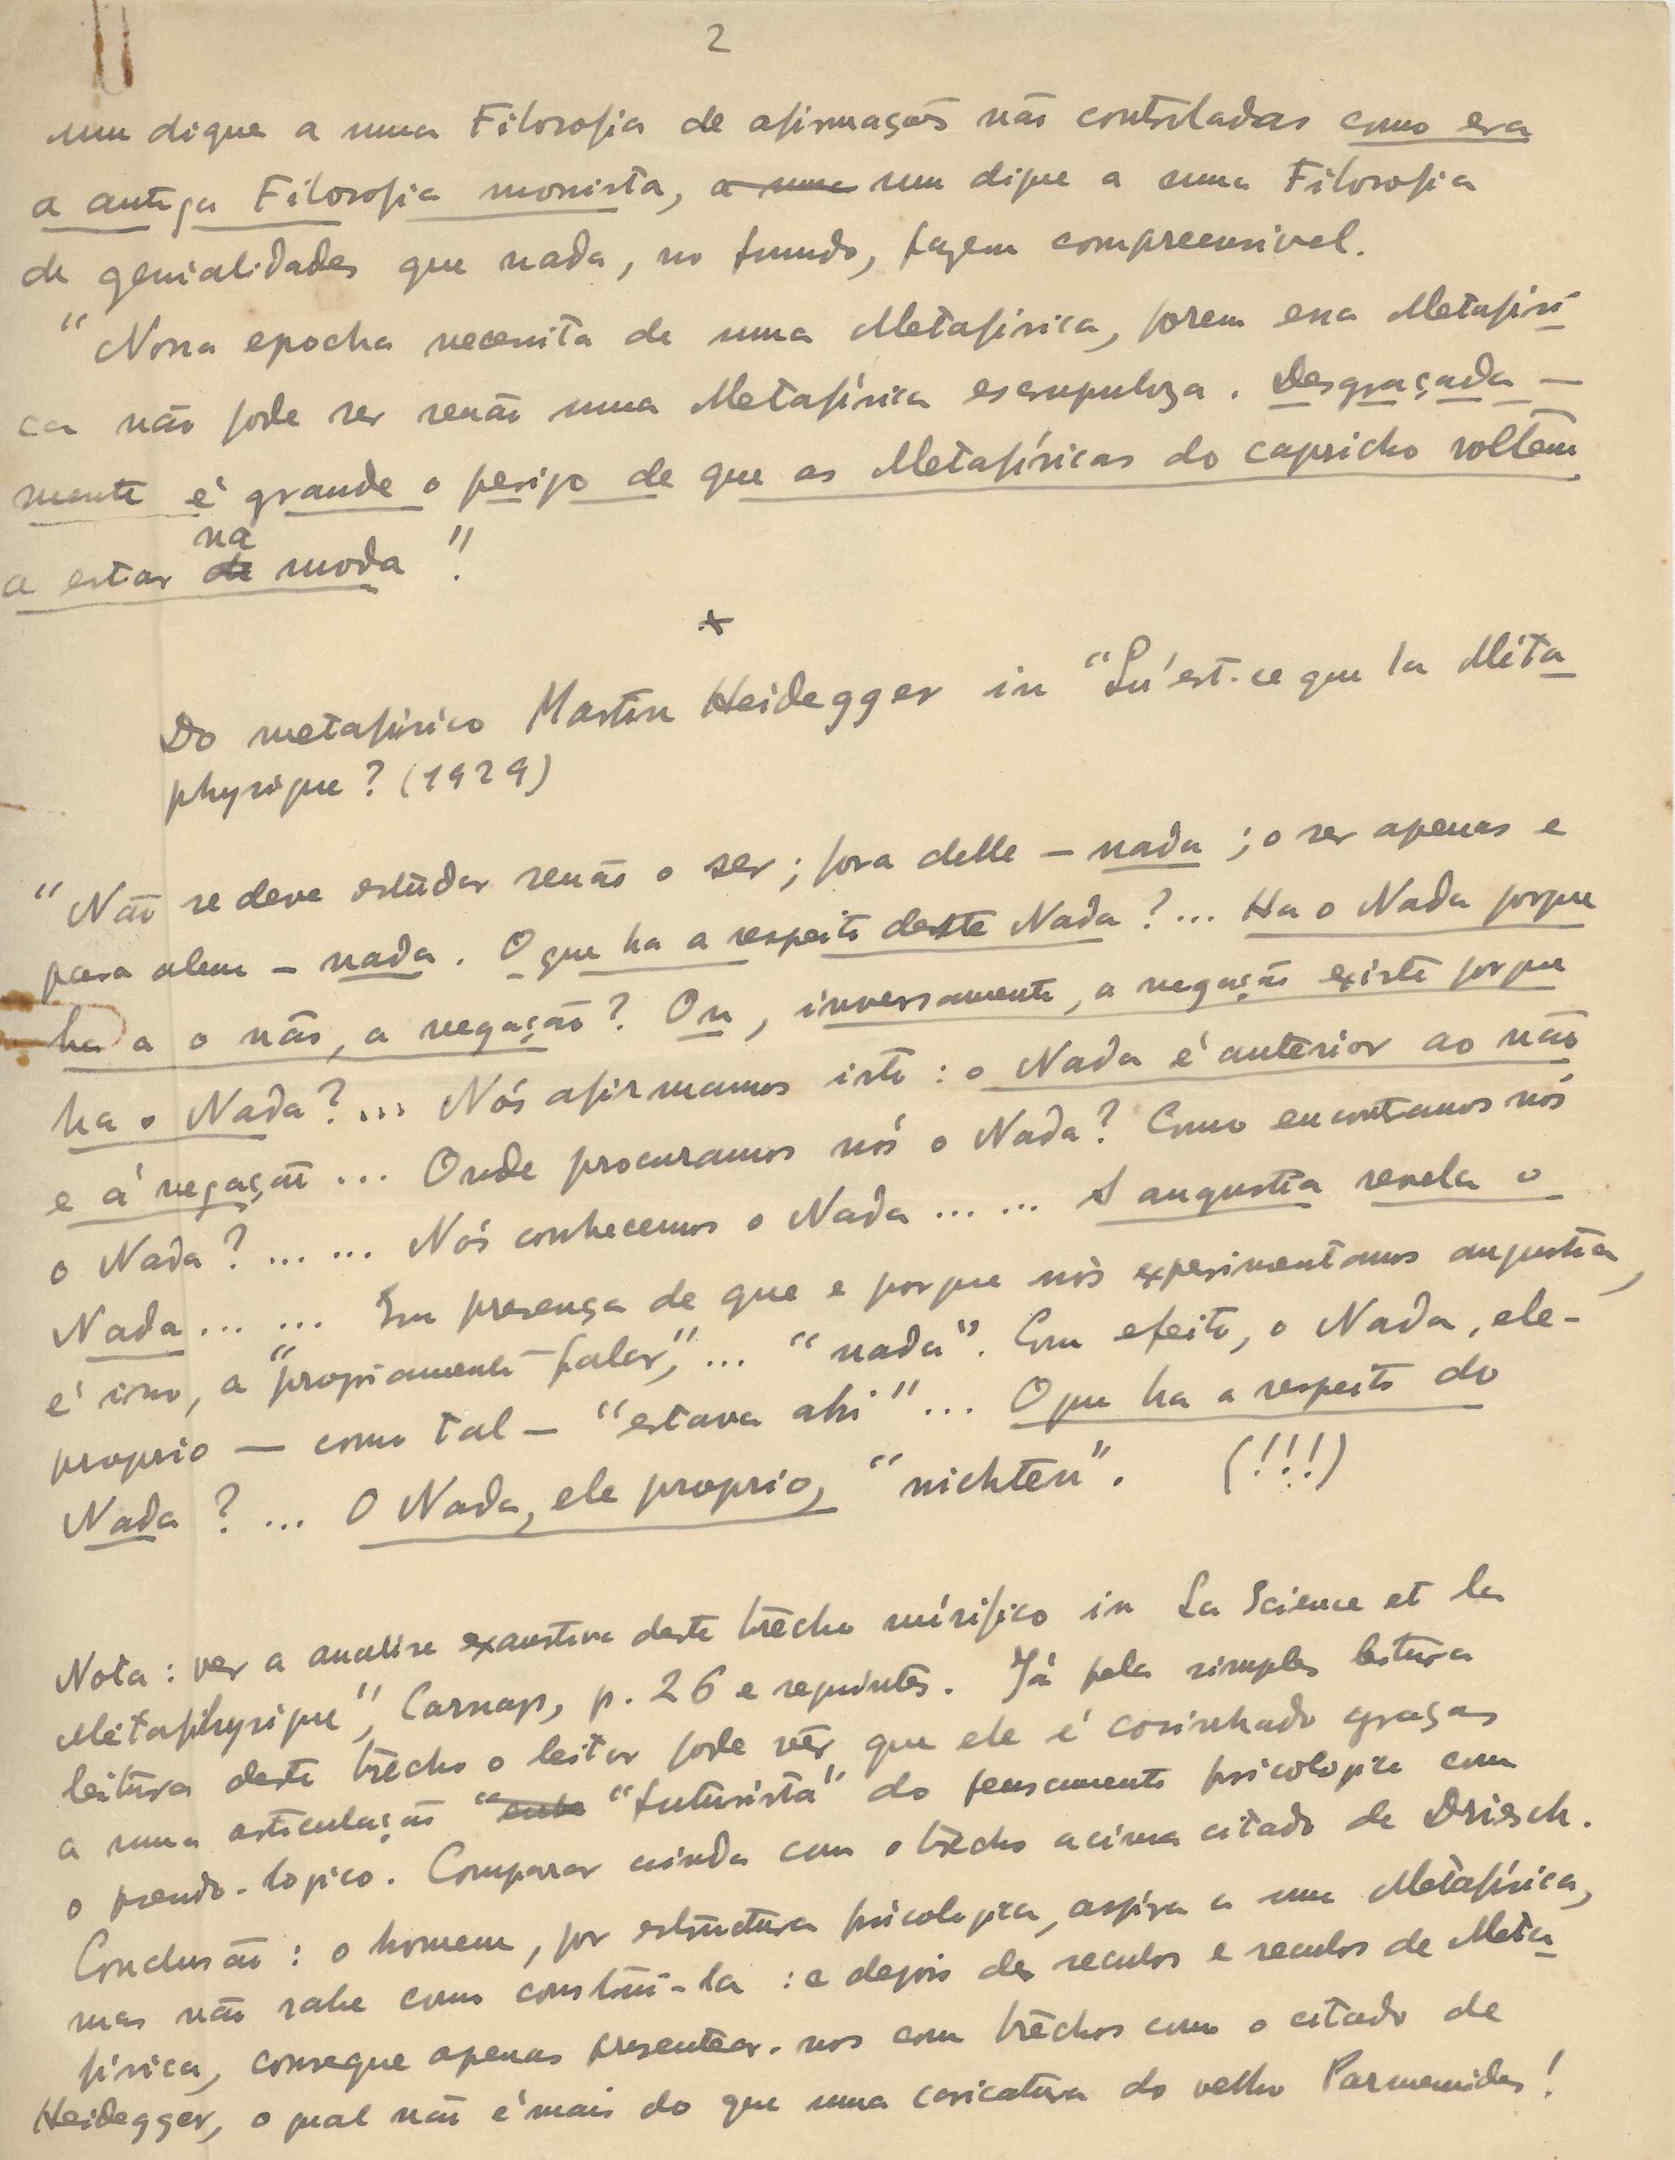 2
um dique a uma Filosofia de afirmações não controladas como era
a antiga Filosofia monista, a uma um dique a uma Filosofia
de genialidades que nada, no fundo, fazem compreensivel.
"Nossa epocha necessita de uma Metafisica, porem essa Metafisi
ca não pode ser senão uma Metafísica escrupuloza. Desgraçada-
mente é grande o perigo de que as Metafísicas do capricho voltem
na
a estar de moda".
*
Do metafisico Martin Heidegger in "Qu'est-ce que la Méta
physique? (1929)
"Não se deve estudar senão o ser; fora delle - nada; o ser apenas e
para alem - nada. O que ha a respeito deste Nada?... Ha o Nada porque
ha a o não, a negação? Ou, inversamente, a negação existe porque
ha o Nada?... Nós afirmamos isto: o Nada é anterior ao não
e á negação... Onde procuramos nós o Nada? Como encontramos nós
o Nada?... ... Nós conhecemos o Nada... ... A angustia revela o
Nada... ... Em presença de que e porque nós experimentamos angustia,
é isso, a "propriamente falar",... "nada". Com efeito, o Nada, ele-
proprio - como tal - "estava ahi"... O que ha a respeito do
Nada?... O Nada, ele proprio, "nichten". (!!!)
Nota: ver a analise exaustiva deste trêcho mirifico in La Science et la
Métaphysique", Carnap, p. 26 e seguintes. Já pela simples leitura
leitura deste trêcho o leitor pode vêr que ele é cosinhado graças
a uma articulação " "futurista" do pensamento psicologico com
o pseudo-logico. Comparar ainda com o trêcho acima citado de Driesch.
Conclusão: o homem, por estructura psicologica, aspira a uma Metafísica,
mas não sabe como construi-la: e depois de seculos e seculos de Meta
física, consegue apenas presentear-nos com trêchos como o citado de
Heidegger, o qual não é mais do que uma caricatura do velho Parmenides!